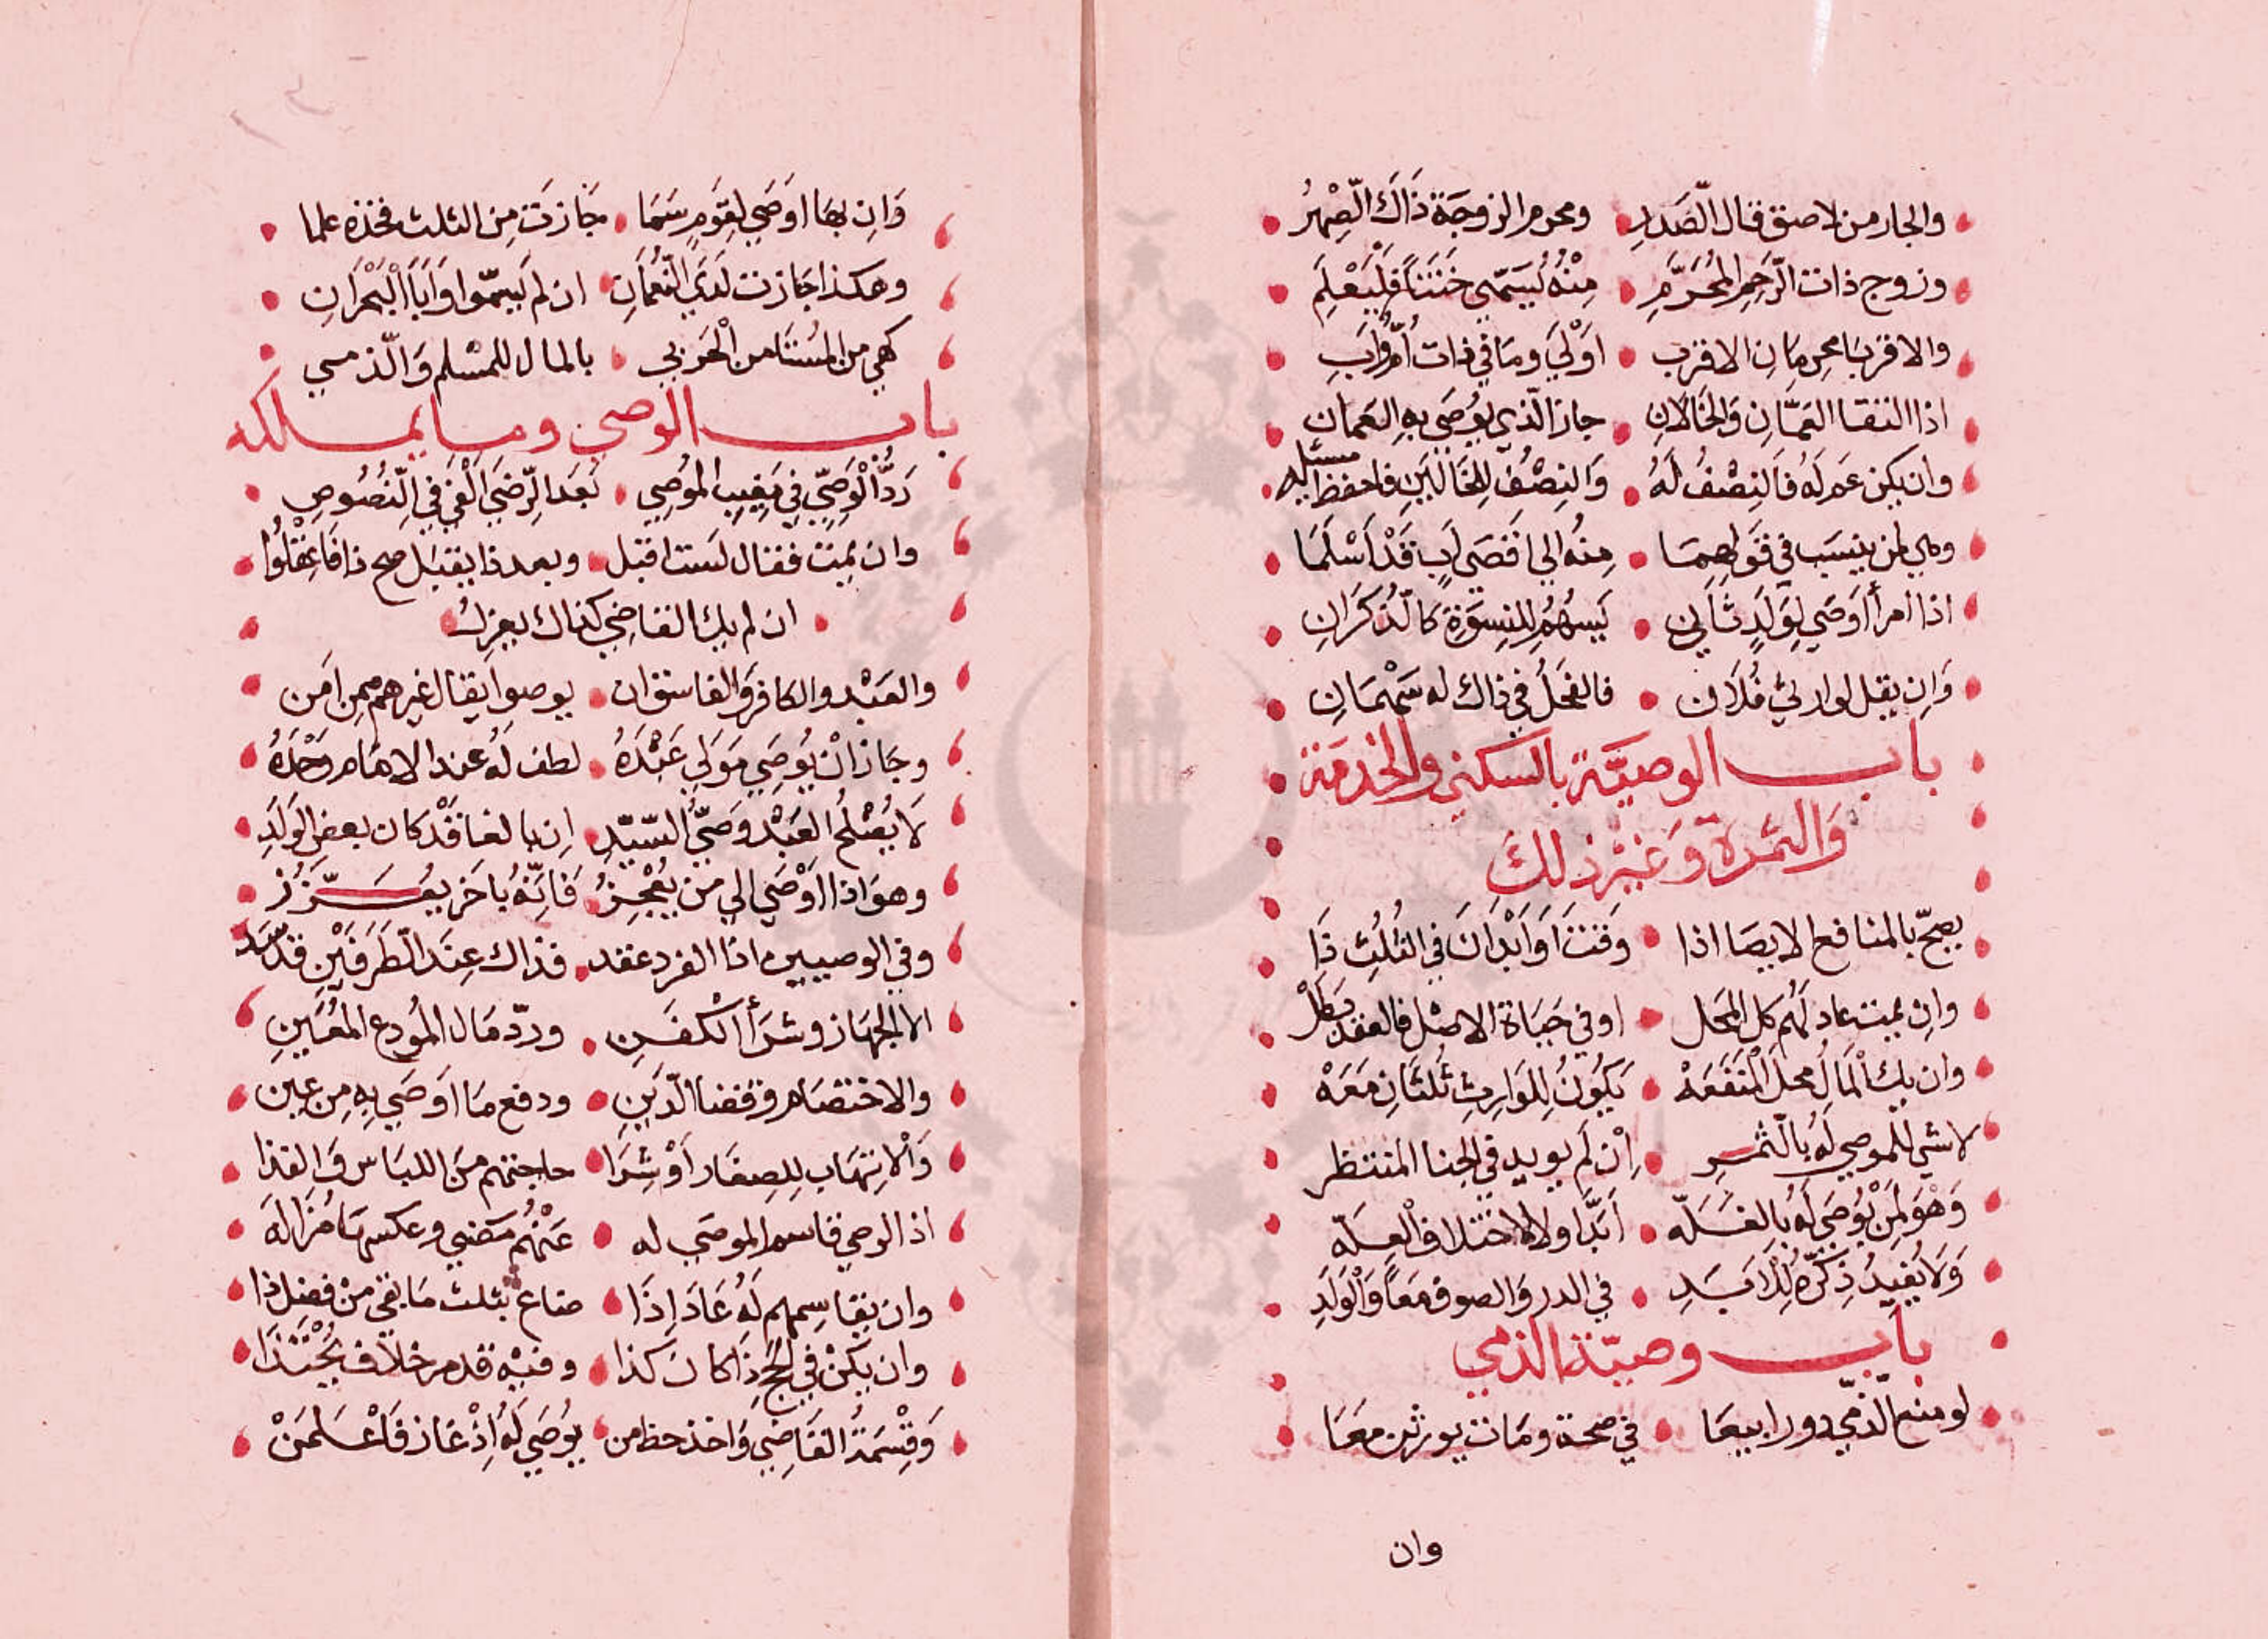 والجار من لاصق قال الصَّدر ومحرم الزوجَة ذَاكَ الصِّهْرُ
وزوج ذات الرَّحِمِ المُحَرَّمِ مِنْهُ يُسَمّى خَتَنًا فَلْيُعْلَمِ
والاقربَا محرمَانِ الاقرب اَوْلَى وما في ذات اُمٍّ وَاَبِ
اذا التقا العَمَّانِ وَالخَالَانِ جاز الّذي يوُصَى بهِ العَمانِ
وان يكن عَم لَهُ فَالنِصْفُ لَهُ وَالنِصْفُ لِلخَالَيْنِ فاحفظ مسئله
وهي لمن ينسَب في قَولِهِمَا مِنْهُ الى اقصَى اَبٍ قَدْ اَسْلَمَا
اذا امرأ اَوصَى لِوَلَدِ ثَانِى يُسْهَمُ للنِسوَةِ كالذُّكرَانِ
وَاِن يقل لوارثي فُلَان فالفحلُ في ذاك له سَهْمَانِ
باب الوصيَّة بالسكنى والخدمَة
وَالثمرَة وَغيْرِ ذلِكَ
يصحّ بالمنافع الايصَا اذا وَقتَا اَوَ ابْدا كَ في الثُلُثِ ذَا
وان يمت عاد لَهُم كل المحَل او في حَيَاة الاصْل فالعقد بَطَلْ
وان يك المَالُ محلَ المنفَعَهْ يَكُونُ لِلوَارِثِ ثُلثَانِ مَعَهْ
لا شي للموصي لَهُ بالثمرِ اِنْ لَم يوبد في الجنا المنتظر
وَهْوَ لِمَنْ يُوصَى لَهُ بالغلّه اَبَدًا ولا لاختلاف العِلّه
وَلَا يُفِيدُ ذِكْرُهُ لِلْاَبَدِ في الدر وَالصوف مَعًا وَالوَلَدِ
باب وصيّة الذمي
لو منع الذّميّ دورا بيعَا في صحة وَمَات يورثن معَا
وان
وَاِن بهَا اوَصَى لِقَومٍ سَمَا جَازت مِن الثلث فخذه علما
وهكذا جَازت لَدَى النّعمَانِ ان لم يسمّوا وَاَبَا البْحْرَانِ
كهي من المُستَامن الْحَربي بالمال للمسْلم وَالذمي
باب الوصي وما يملكه
رَدُّ الْوَصِيِّ في مَغِيبِ المُوصِي بَعدَ الرّضى اَلْغي في النُصُوصِ
وان يمت فقال لست اقبل وبعد ذا يقبَل صح ذا فَاعْقِلُوا
ان لم يك القاضِي كذاك يعزِلُ
والعَبْد والكافر وَالفاسق ان يوصوا يقال غيرهم ممن امَن
وجَاز اَنْ يُوصَى مَولى عَبْدَهُ لطف لَهُ عند الامَام وَحْدَهُ
لَا يُصْلحُ العَبْد وَصِيُّ السّيّدِ اِن بالغا قَدْ كان بعض الوَلَدِ
وهو اذا اَوْصَى الى من يُعْجِزُ فَاِنّهُ باخَر يعُزَّزُ
وفي الوصيين اذا الفرد عقد فذاك عِندَ الطَرَفَيْنِ قد فسد
الا الجهَاز وشرَأ الكفَنِ وردّ مَال المُودع المُعَيَنِ
والاختصَام وقضا الدّينِ ودفع مَا اوَصَى بِهِ مِن عين
وَالِاتِهَابِ لِلصِغَار اَوْ شِرَا حاجتهم مَن اللبَاس وَالغذا
اذ الوصي قاسم الموصَى له عَنْهُم مَضى وعكسهَا مُزَالَه
وان يقاسِمهم لَهُ عَادَ اِذَا ضاع بثلث مَا بقى مِنْ فضل ذا
وان يكنْ في الحَجِ ذَا كان كذا وفيْهِ قدم خلاف يُحْتَذَا
وَقِسْمَةُ القَاضِي وَاخذ حظ من يوُصَى لَهُ اِذْ غاز فَاعْلَمَنْ